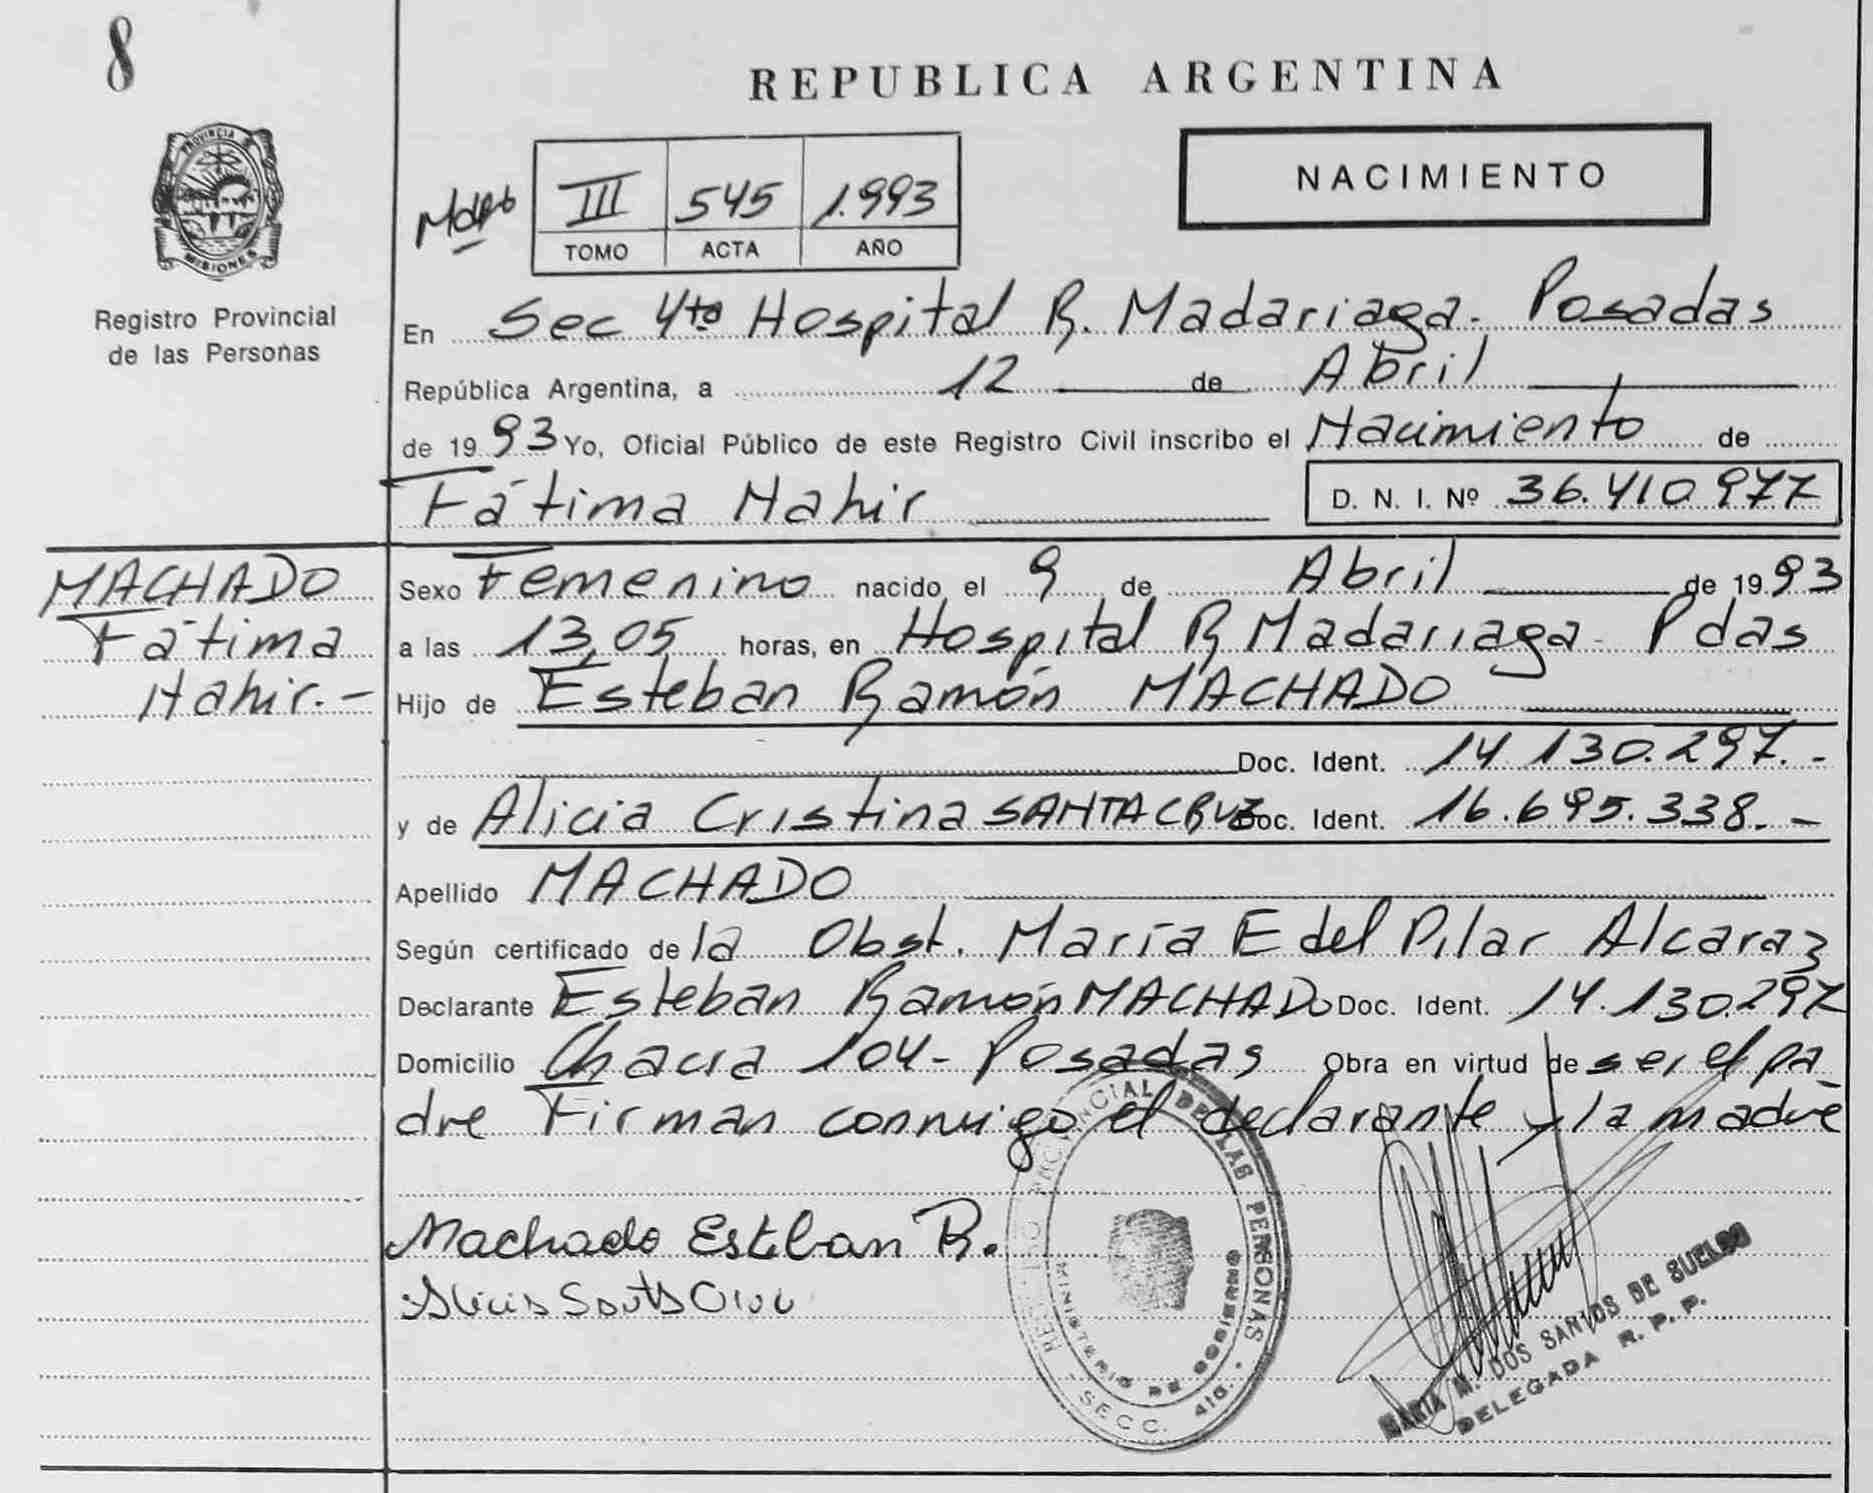 8
REPUBLICA ARGENTINA
PROVINCIA DE
MISIONES
Registro Provincial
de las Personas
III 545 1.993
TOMO ACTA AÑO
NACIMIENTO
En Sec 4ta Hospital R. Madariaga - Posadas
República Argentina, a 12 de Abril
de 1993 Yo, Oficial Público de este Registro Civil inscribo el Nacimiento de
Fátima Nahir D. N. I. Nº 36.410.977
MACHADO
Fátima
Nahir.-
Sexo Femenino nacido el 9 de Abril de 1993
a las 13,05 horas, en Hospital R Madariaga - Pdas
Hijo de Esteban Ramón MACHADO
Doc. Ident. 14.130.297.-
y de Alicia Cristina SANTACRUZ Doc. Ident. 16.695.338.-
Apellido MACHADO
Según certificado de la Obst. María E del Pilar Alcaraz
Declarante Esteban Ramón MACHADO Doc. Ident. 14.130.297
Domicilio Chacra 104 - Posadas Obra en virtud de ser el pa-
dre Firman conmigo el declarante y la madre
Machado Esteban R.
Alicia Santa Cruz
REGISTRO PROVINCIAL DE LAS PERSONAS
MINISTERIO DE GOBIERNO
- SECC. 4ta. -
MARIA M. DOS SANTOS DE SUELDO
DELEGADA R. P. P.